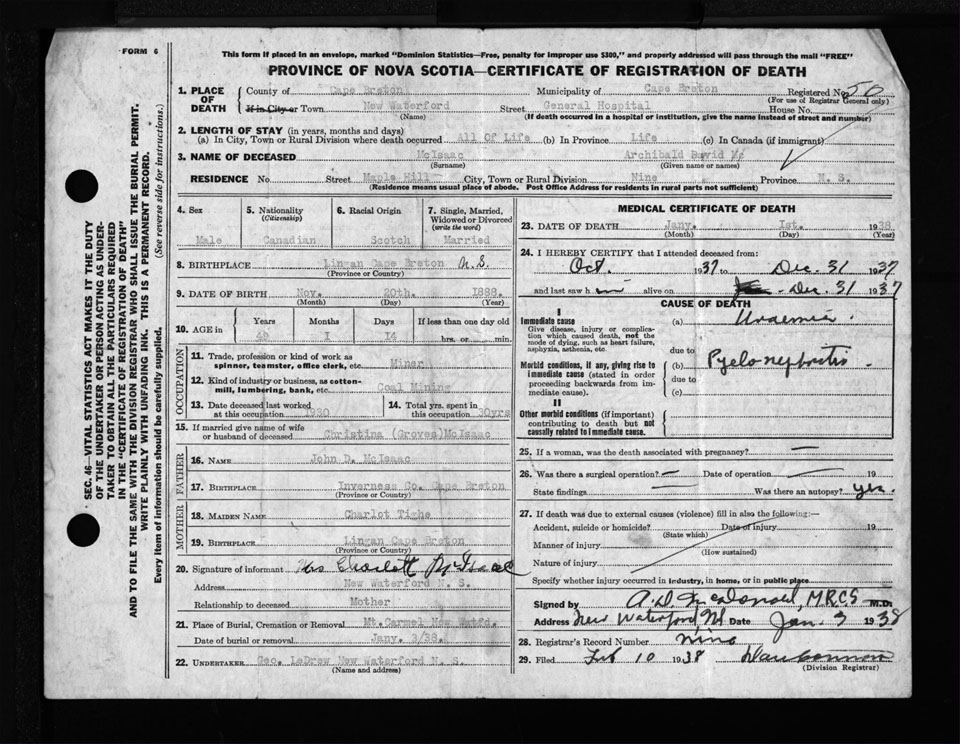 FORM 6
This form if placed in an envelope, marked "Dominion Statistics—Free, penalty for improper use $300," and properly addressed will pass through the mail "FREE"
PROVINCE OF NOVA SCOTIA—CERTIFICATE OF REGISTRATION OF DEATH
SEC. 46—VITAL STATISTICS ACT MAKES IT THE DUTY
OF THE UNDERTAKER OR PERSON ACTING AS UNDER-
TAKER TO OBTAIN ALL THE PARTICULARS REQUIRED
IN THE "CERTIFICATE OF REGISTRATION OF DEATH"
AND TO FILE THE SAME WITH THE DIVISION REGISTRAR WHO SHALL ISSUE THE BURIAL PERMIT.
WRITE PLAINLY WITH UNFADING INK. THIS IS A PERMANENT RECORD.
Every item of information should be carefully supplied. (See reverse side for instructions.)
1. PLACE OF DEATH
County of Cape Breton Municipality of Cape Breton Registered No. 50
(For use of Registrar General only)
If in City or Town New Waterford Street General Hospital House No.
(Name) (If death occurred in a hospital or institution, give the name instead of street and number)
2. LENGTH OF STAY (in years, months and days)
(a) In City, Town or Rural Division where death occurred All Of Life (b) In Province Life (c) In Canada (if immigrant)
3. NAME OF DECEASED McIsaac Archibald David
(Surname) (Given name or names)
RESIDENCE No. Street Maple Hill City, Town or Rural Division Nine Province N. S.
(Residence means usual place of abode. Post Office Address for residents in rural parts not sufficient)
4. Sex 5. Nationality (Citizenship) 6. Racial Origin 7. Single, Married, Widowed or Divorced (write the word)
Male Canadian Scotch Married
8. BIRTHPLACE Lingan Cape Breton N.S.
(Province or Country)
9. DATE OF BIRTH Nov. 20th. 1888.
(Month) (Day) (Year)
10. AGE in Years Months Days If less than one day old
1 14 hrs. or min.
OCCUPATION
11. Trade, profession or kind of work as spinner, teamster, office clerk, etc. Miner
12. Kind of industry or business, as cotton-mill, lumbering, bank, etc. Coal Mining
13. Date deceased last worked at this occupation 1920
14. Total yrs. spent in this occupation 30yrs
15. If married give name of wife or husband of deceased Christina (Groves)McIsaac
FATHER
16. NAME John D. McIsaac
17. BIRTHPLACE Inverness Co. Cape Breton
(Province or Country)
MOTHER
18. MAIDEN NAME Charlot Tighe
19. BIRTHPLACE Lingan Cape Breton
(Province or Country)
20. Signature of informant Mrs Charlott McIsaac
Address New Waterford N. S.
Relationship to deceased Mother
21. Place of Burial, Cremation or Removal Mt.Carmel New Watfd.
Date of burial or removal Jany. 3/38.
22. UNDERTAKER Geo. LeDrew New Waterford N. S.
(Name and address)
MEDICAL CERTIFICATE OF DEATH
23. DATE OF DEATH Jany. 1st. 1938.
(Month) (Day) (Year)
24. I HEREBY CERTIFY that I attended deceased from:
Oct. 1937 to Dec. 31 1937
and last saw him alive on Dec. 31 1937
CAUSE OF DEATH
I
Immediate cause (a) Uraemia.
Give disease, injury or complication which caused death, not the mode of dying, such as heart failure, asphyxia, asthenia, etc.
due to
Morbid conditions, if any, giving rise to immediate cause (stated in order proceeding backwards from immediate cause).
(b) Pyelonephritis.
due to
(c)
II
Other morbid conditions (if important) contributing to death but not causally related to immediate cause.
25. If a woman, was the death associated with pregnancy? —
26. Was there a surgical operation? — Date of operation — 19
State findings — Was there an autopsy? yes.
27. If death was due to external causes (violence) fill in also the following:—
Accident, suicide or homicide? Date of injury 19
(State which)
Manner of injury
(How sustained)
Nature of injury
Specify whether injury occurred in industry, in home, or in public place
Signed by A. D. McDonald, M.R.C.S M.D.
Address New Waterford NS Date Jan. 3 1938
28. Registrar's Record Number Nine
29. Filed Feb 10 1938
(Division Registrar)